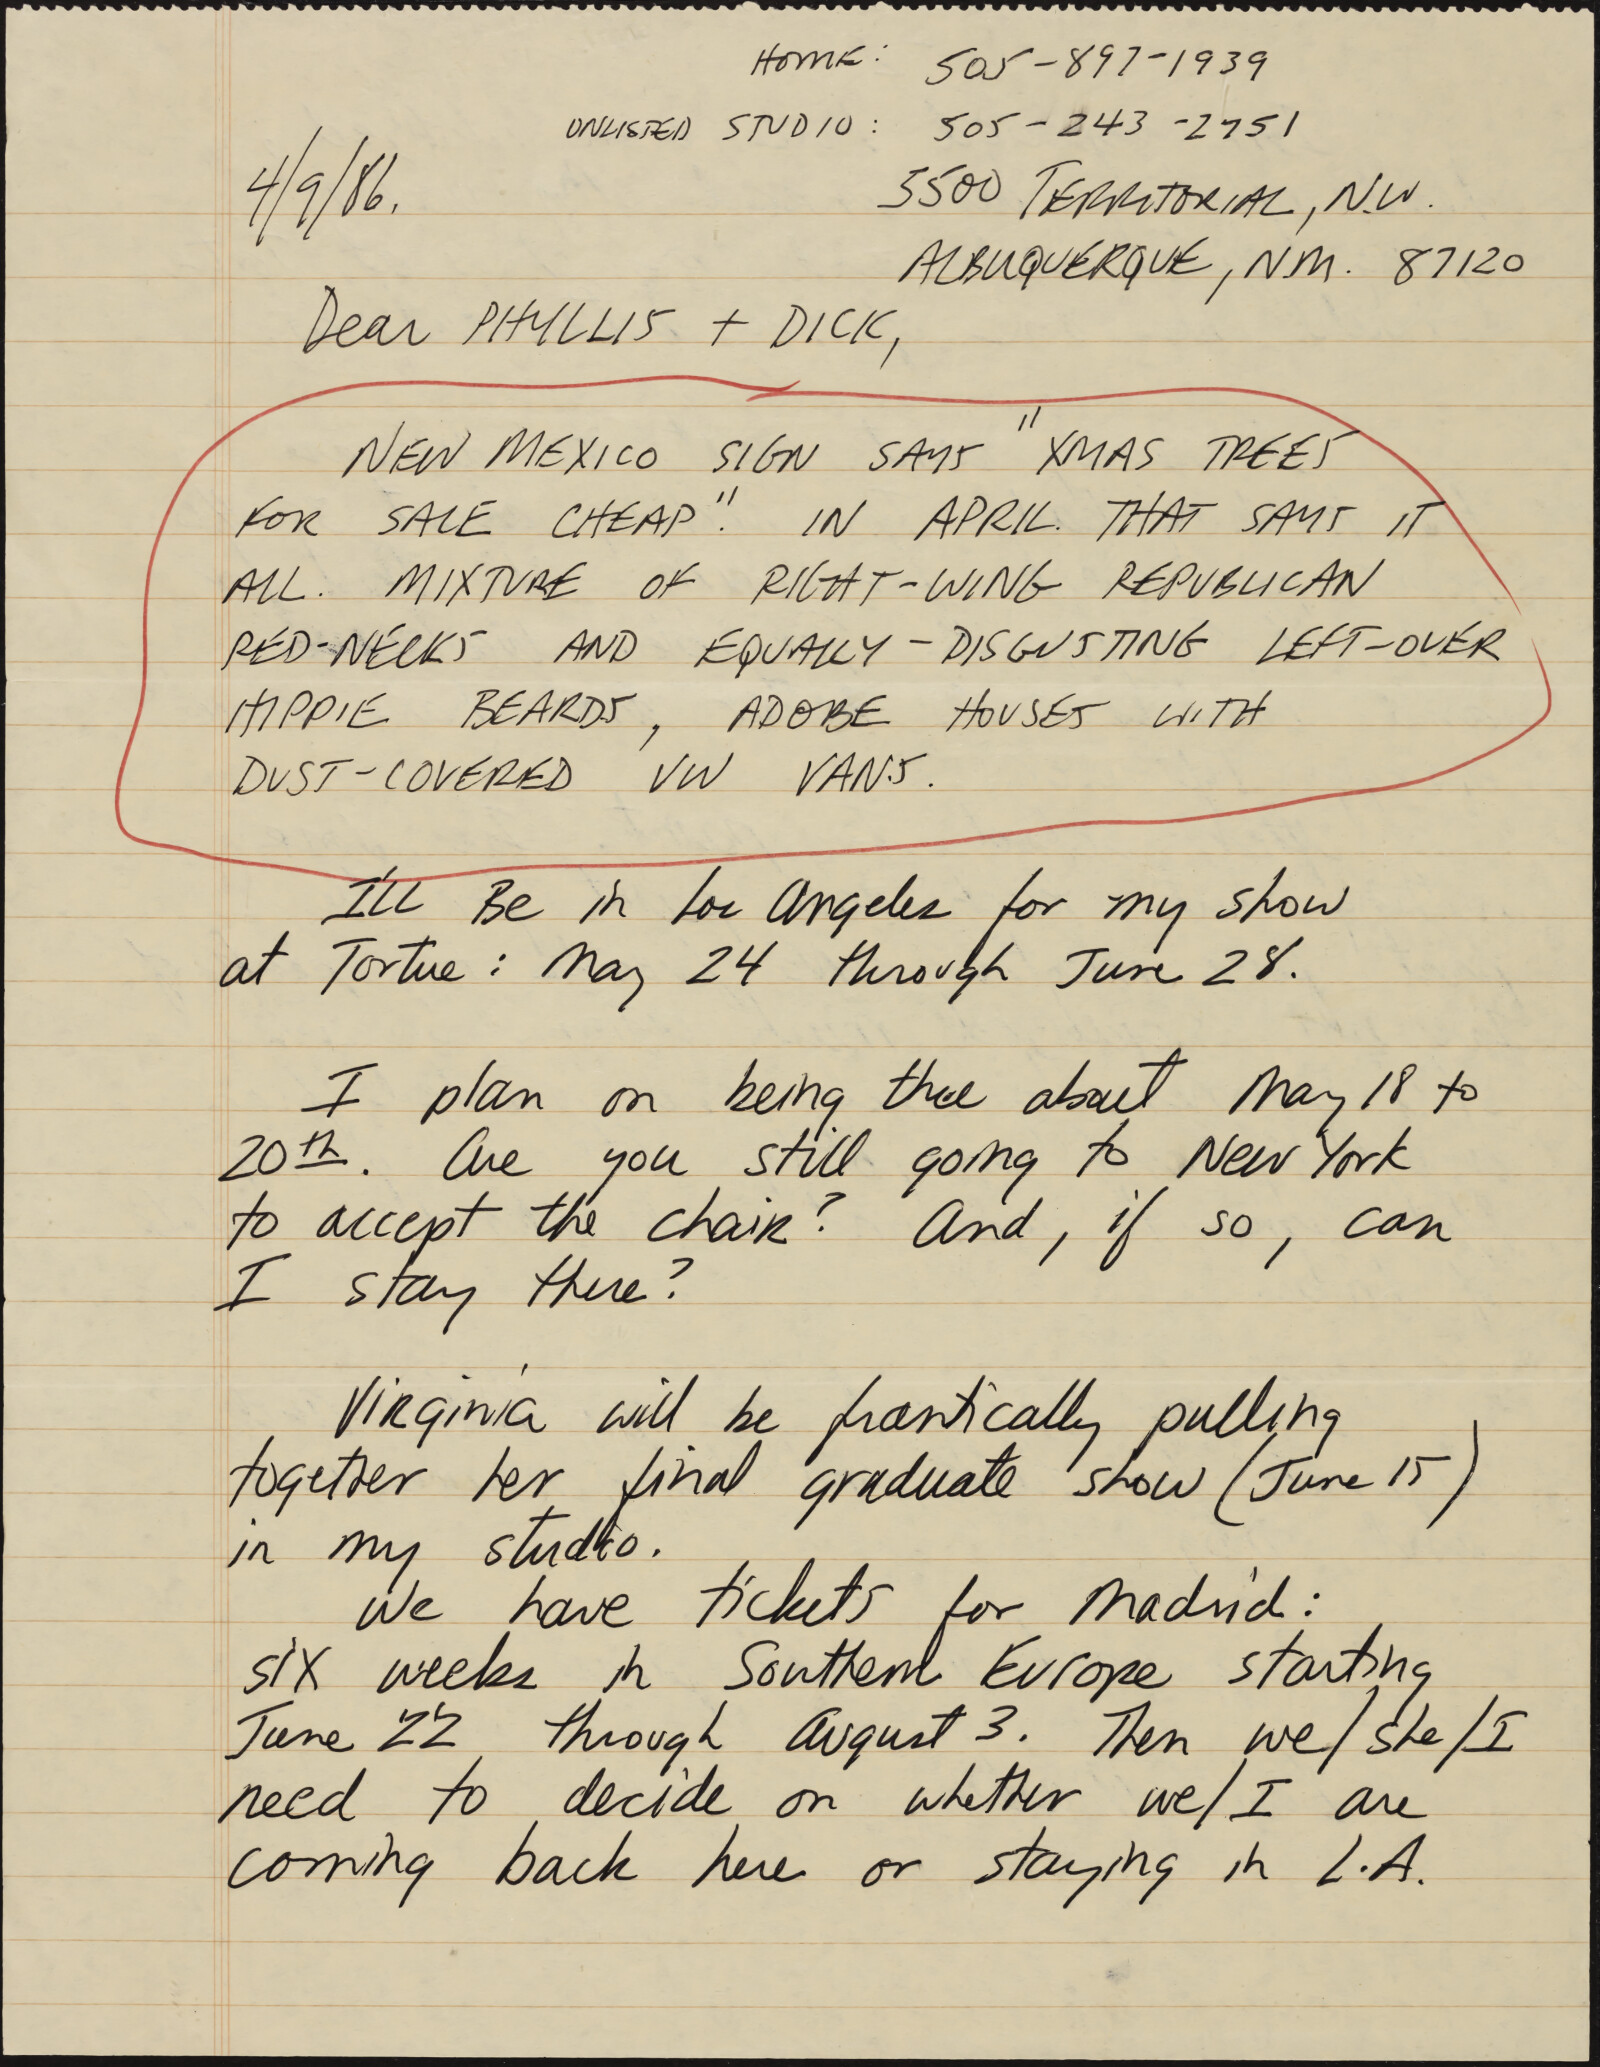 HOME: 505-897-1939
UNLISTED STUDIO: 505-243-2751
4/9/86.
5500 TERRITORIAL, N.W.
ALBUQUERQUE, N.M. 87120
Dear PHYLLIS + DICK,
NEW MEXICO SIGN SAYS "XMAS TREES
FOR SALE CHEAP". IN APRIL. THAT SAYS IT
ALL. MIXTURE OF RIGHT-WING REPUBLICAN
RED-NECKS AND EQUALLY-DISGUSTING LEFT-OVER
HIPPIE BEARDS, ADOBE HOUSES WITH
DUST-COVERED VW VANS.
I'LL BE in Los Angeles for my show
at Tortue: May 24 through June 28.
I plan on being there about May 18 to
20th. Are you still going to New York
to accept the chair? And, if so, can
I stay there?
Virginia will be frantically pulling
together her final graduate show (June 15)
in my studio.
We have tickets for Madrid:
six weeks in Southern Europe starting
June 22 through August 3. Then we/she/I
need to decide on whether we/I are
coming back here or staying in L.A.